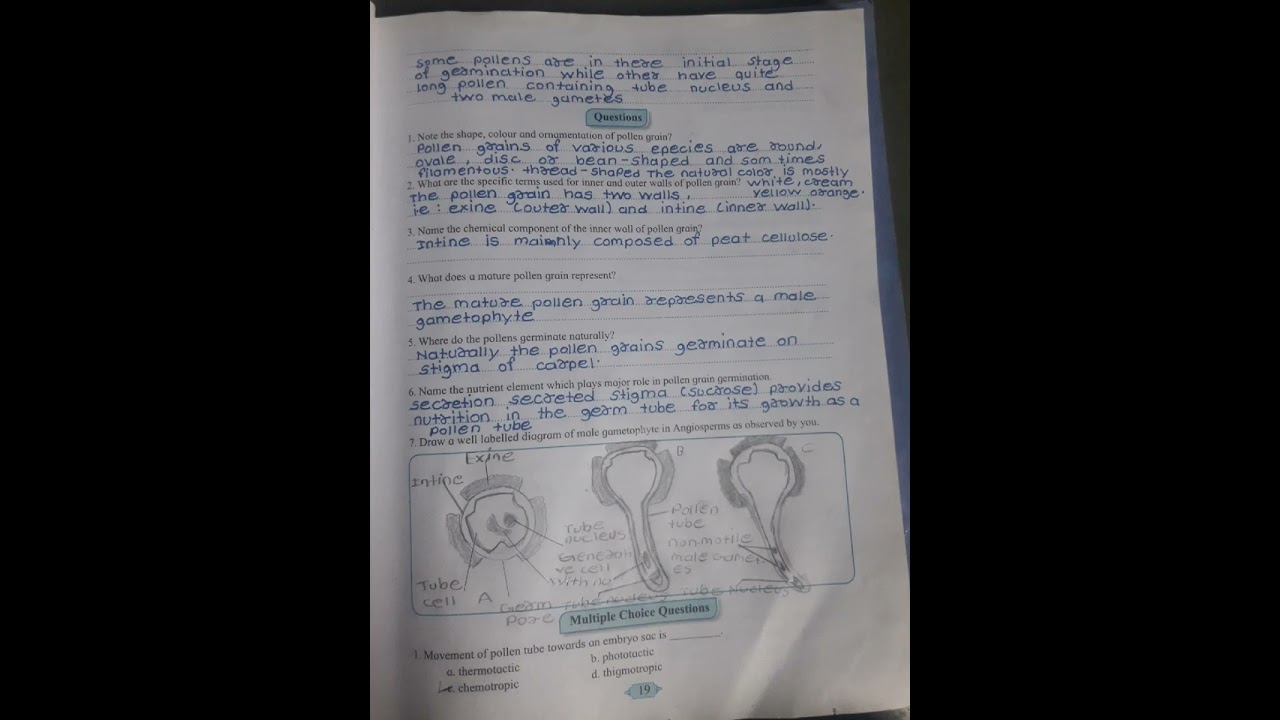 some pollens are in there initial stage
of germination while other have quite
long pollen containing tube nucleus and
two male gametes
Questions
1. Note the shape, colour and ornamentation of pollen grain?
Pollen grains of various epecies are round,
ovale, disc or bean-shaped and som times
filamentous. thread-shaped The natural color is mostly
2. What are the specific terms used for inner and outer walls of pollen grain? white, cream
The pollen grain has two walls, yellow orange.
ie: exine (outer wall) and intine (inner wall).
3. Name the chemical component of the inner wall of pollen grain?
Intine is mainly composed of peat cellulose.
4. What does a mature pollen grain represent?
The mature pollen grain represents a male
gametophyte
5. Where do the pollens germinate naturally?
Naturally the pollen grains germinate on
stigma of carpel.
6. Name the nutrient element which plays major role in pollen grain germination.
secretion secreted stigma (sucrose) provides
nutrition in the germ tube for its growth as a
pollen tube
7. Draw a well labelled diagram of male gametophyte in Angiosperms as observed by you.
Exine
B
C
Intine
Pollen
tube
Tube
nucleus
non-motile
Generati
ve cell
male gamet
es
Tube
cell
A
Germ
pore
tube nucleus
tube nucleus
Multiple Choice Questions
1. Movement of pollen tube towards an embryo sac is ________.
a. thermotactic
b. phototactic
c. chemotropic
d. thigmotropic
19